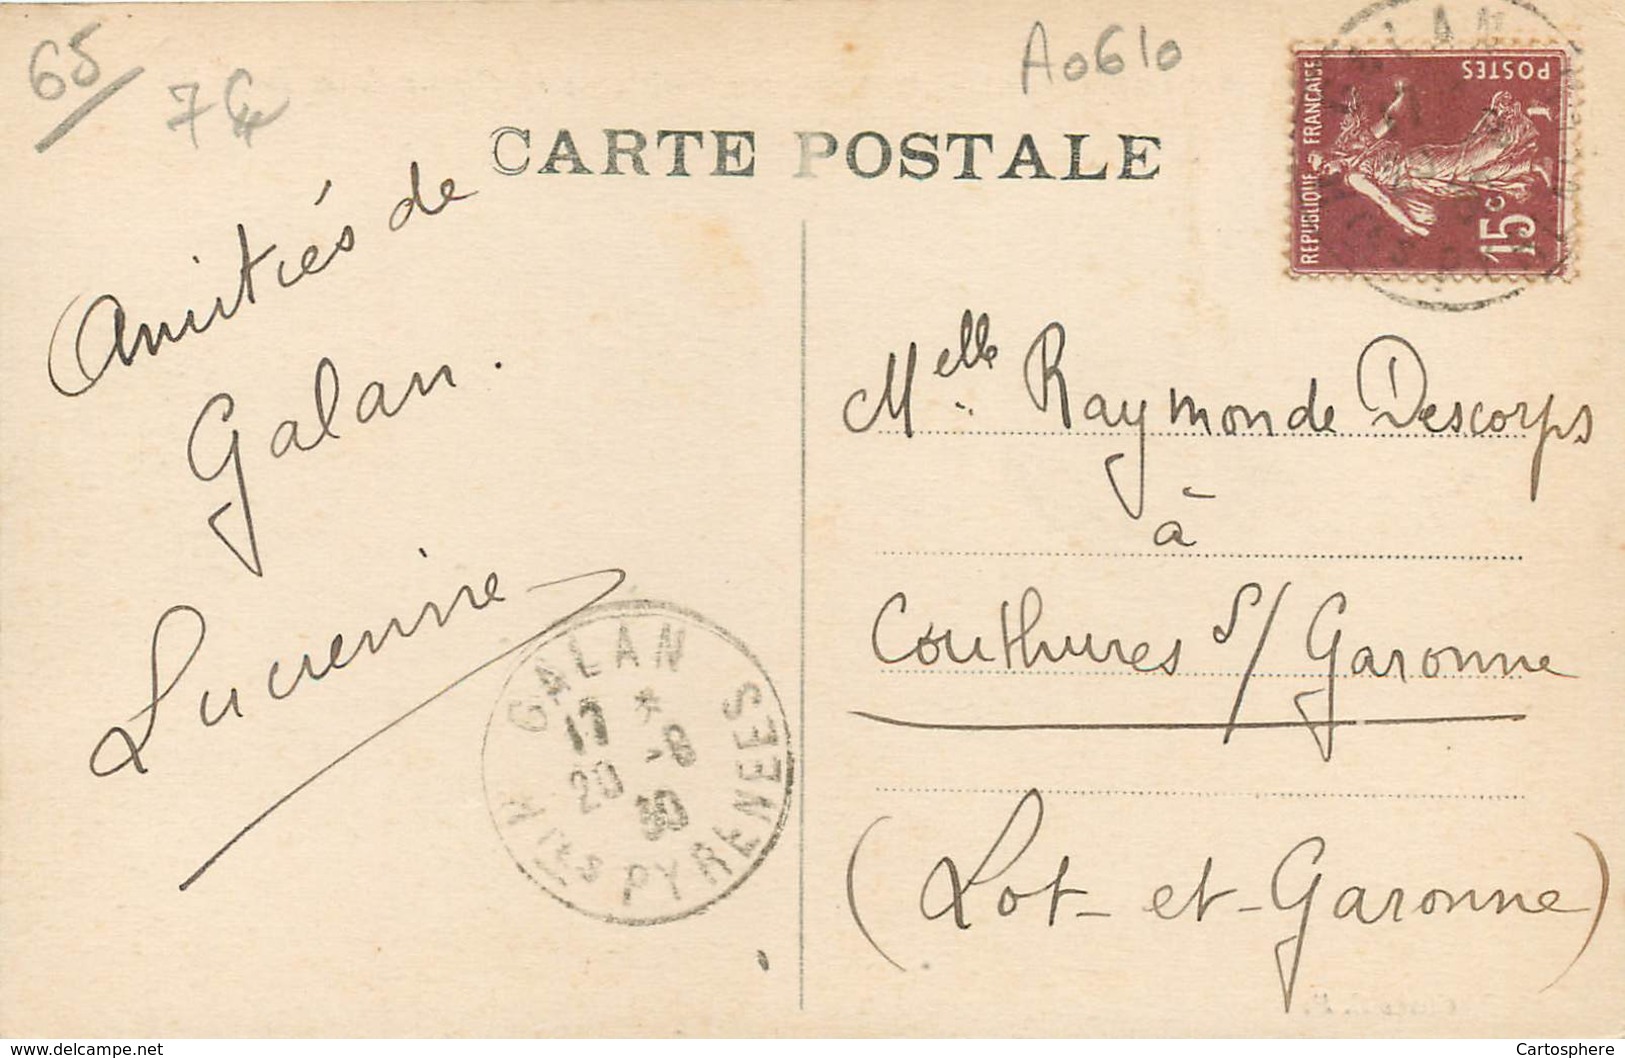 65
7€
A0610
CARTE POSTALE
REPUBLIQUE FRANÇAISE
POSTES
15c
Amitiés de
Galan.
Lucienne
GALAN
17 *
20 -8
30
Htes PYRENEES
Melle Raymonde Descorps
à
Couthures s/ Garonne
(Lot-et-Garonne)
https://www.delcampe.net
Cartosphere